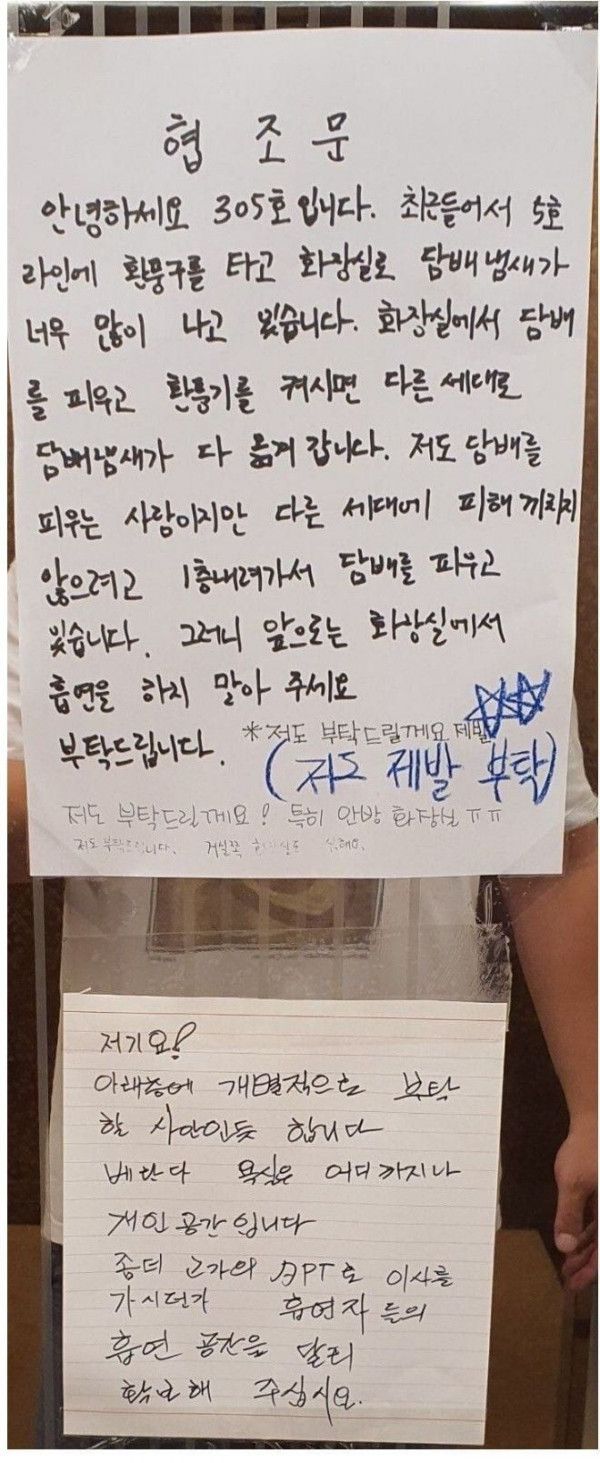 협조문
안녕하세요 305호입니다. 최근들어서 5호
라인에 환풍구를 타고 화장실로 담배냄새가
너무 많이 나고 있습니다. 화장실에서 담배
를 피우고 환풍기를 켜시면 다른 세대로
담배냄새가 다 옮겨 갑니다. 저도 담배를
피우는 사람이지만 다른 세대에 피해 끼치지
않으려고 1층내려가서 담배를 피우고
있습니다. 그러니 앞으로는 화장실에서
흡연을 하지 말아 주세요
부탁드립니다.
*저도 부탁드릴께요 제발
(저도 제발 부탁)
저도 부탁드릴께요! 특히 안방 화장실 ㅠㅠ
저도 부탁드립니다. 거실쪽 화장실도
저기요!
아래층에 개별적으로 부탁
할 사안인듯 합니다
베란다 욕실은 어디까지나
개인공간입니다
좀더 고가의 APT로 이사를
가시던가 흡연자들의
흡연 공간을 말리
확보해 주십시요.